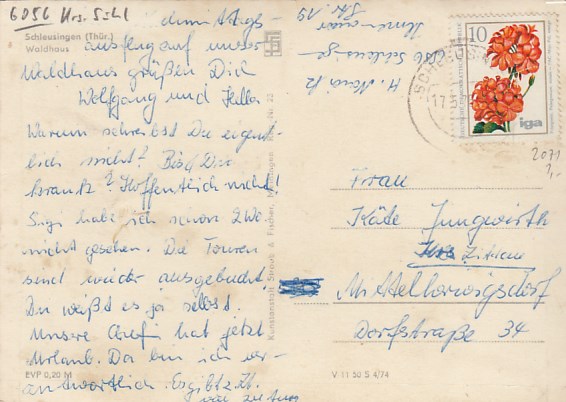 6056 Krs. Suhl
Schleusingen (Thür.)
Waldhaus
ausflug auf unser
Waldhaus grüßen Dich
Wolfgang und
Warum schreibst Du eigent-
lich nicht? Bist Du
krank? Hoffentlich nicht!
Sigi hab ich schon 2 Wo
nicht gesehen. Die Touren
sind wieder ausgebucht.
Du weißt es ja selbst.
Unsere Chefin hat jetzt
Urlaub. Da bin ich ver-
antwortlich. Es gibt z. Zt.
viel zu tun
EVP 0,20 M
Kunstanstalt Straub & Fischer, Meiningen
V 11 50 S 4/74
H.
Schleusingen
Ilmenauer
Str. 19
10
iga
17
2071
1,-
Frau
Käte Jungwirth
Zittau
Mittelherwigsdorf
Dorfstraße 34